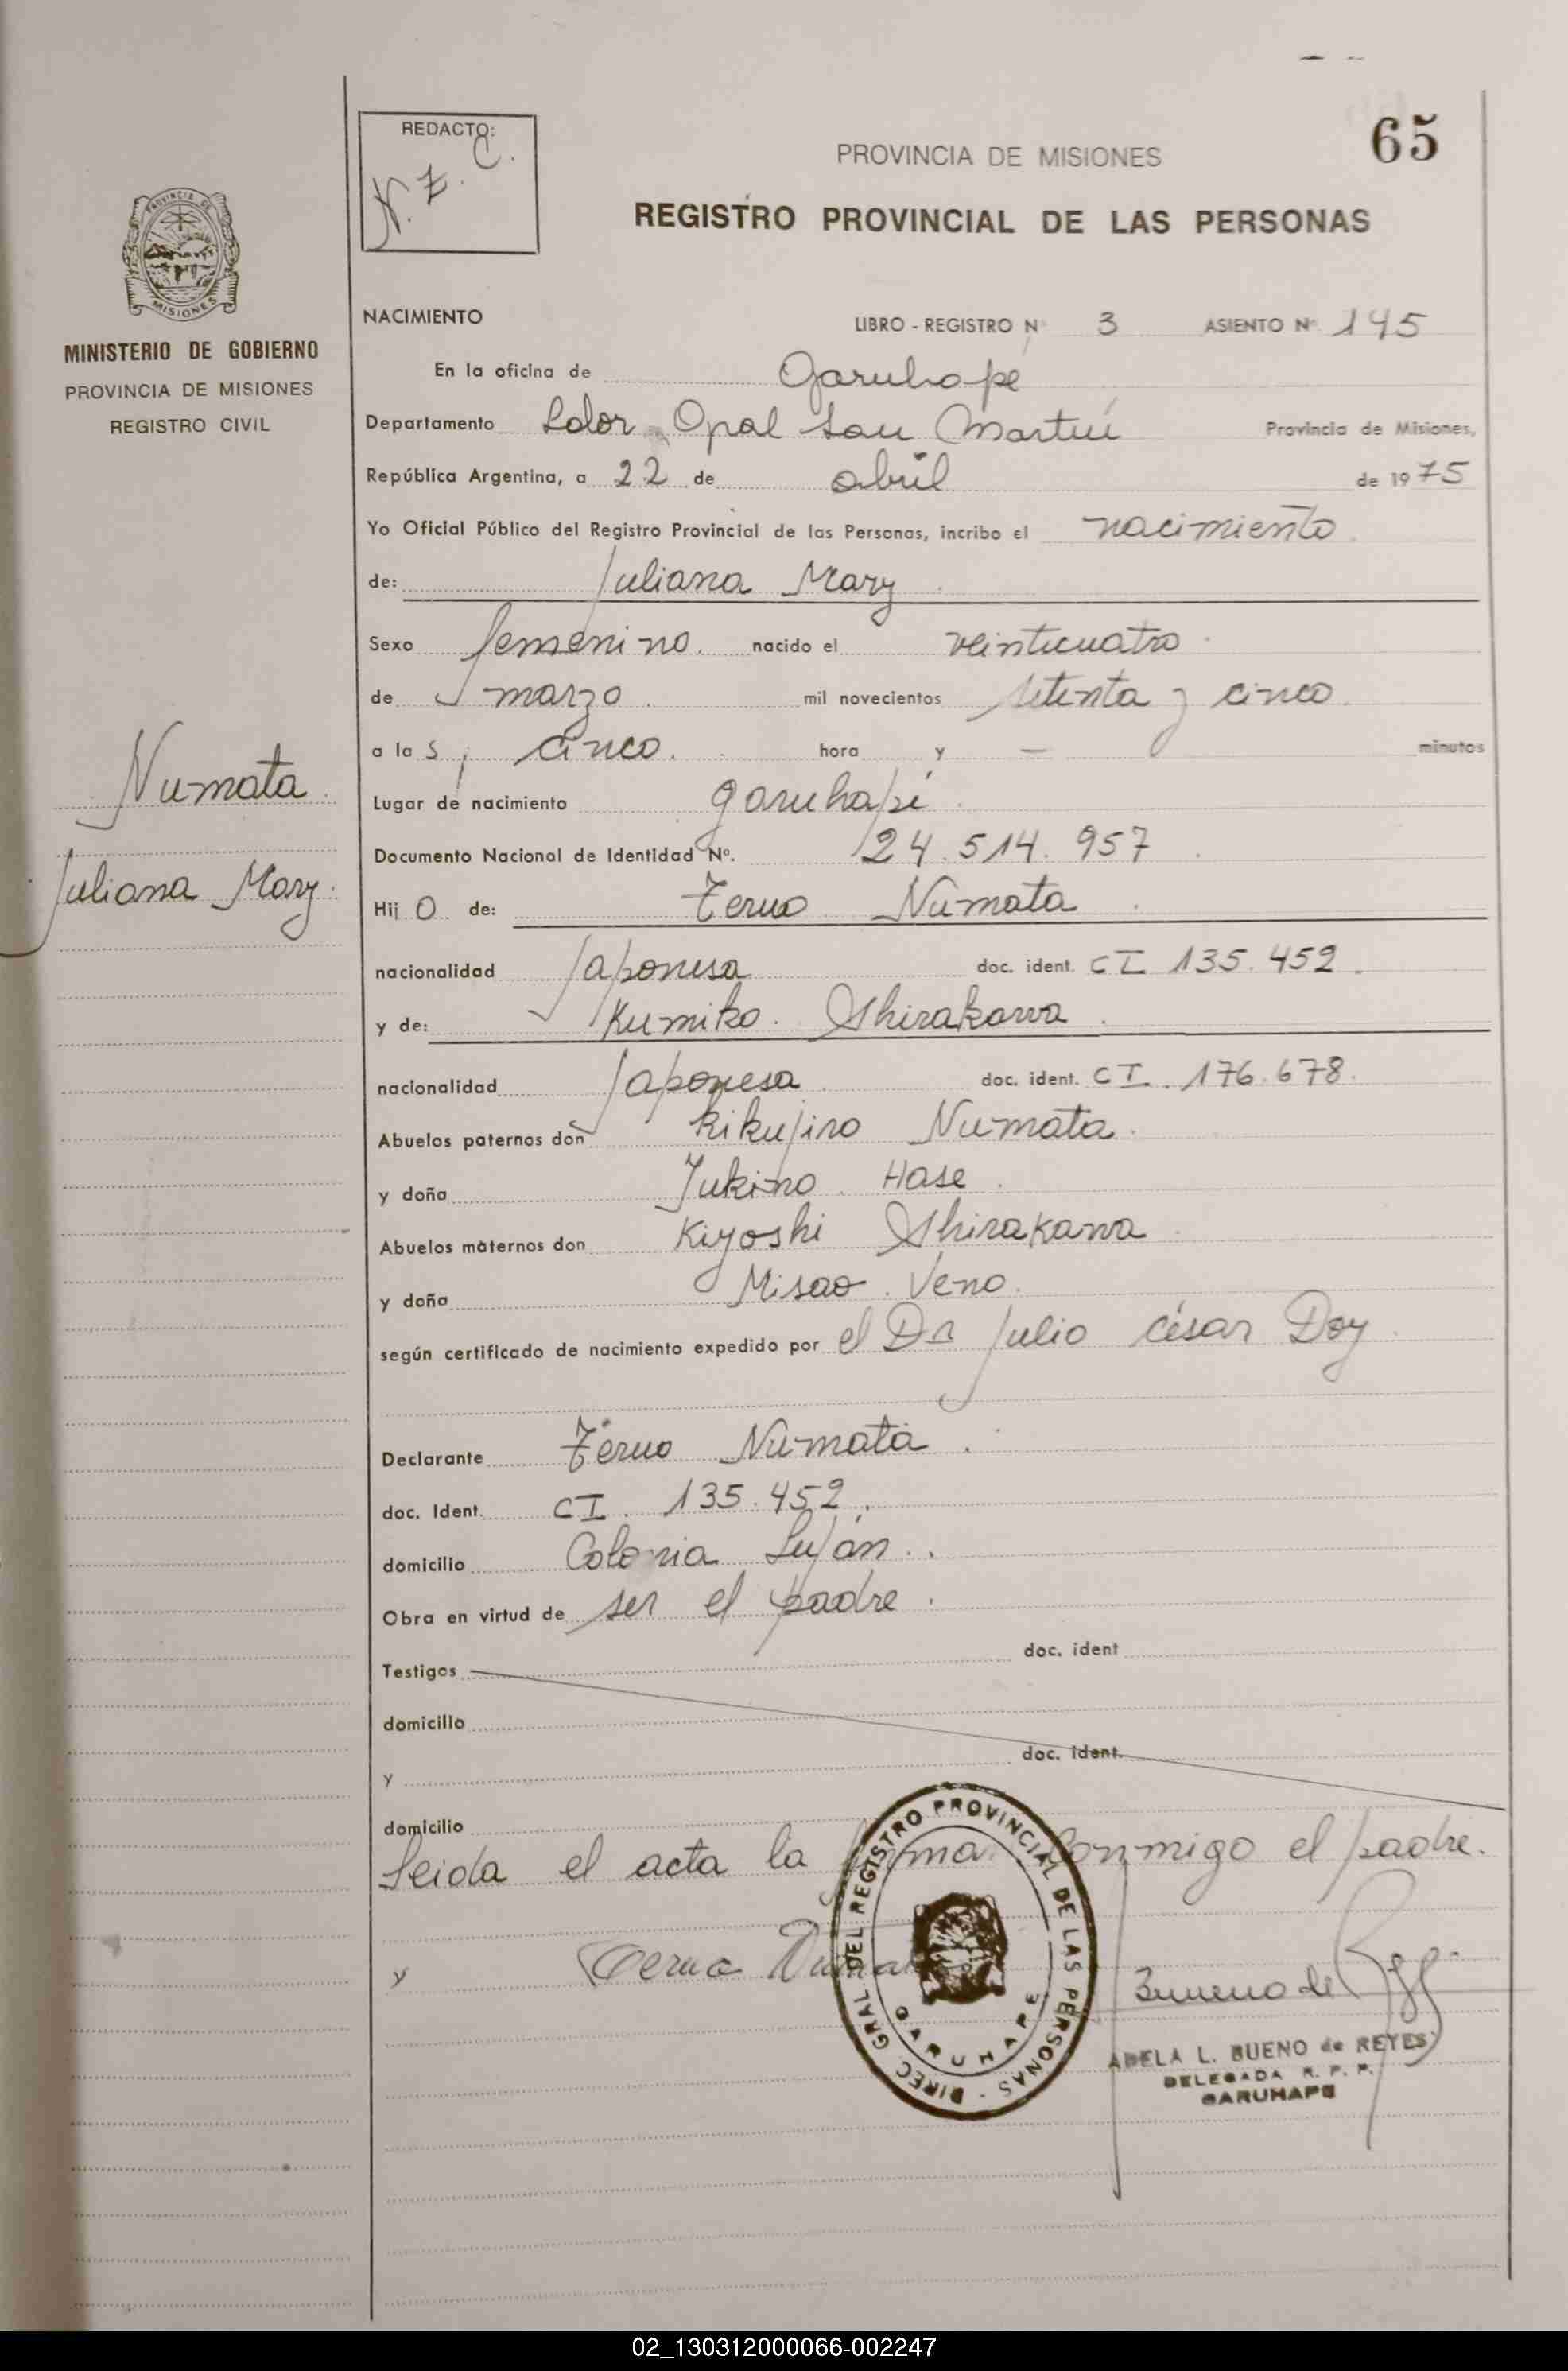 65
REDACTO:
N. Z. C.
PROVINCIA DE MISIONES
REGISTRO PROVINCIAL DE LAS PERSONAS
PROVINCIA DE
MISIONES
MINISTERIO DE GOBIERNO
PROVINCIA DE MISIONES
REGISTRO CIVIL
Numata
Juliana Mary
NACIMIENTO LIBRO - REGISTRO Nº 3 ASIENTO Nº 145
En la oficina de Garuhapé
Departamento Ldor. Gral San Martín Provincia de Misiones,
República Argentina, a 22 de abril de 1975
Yo Oficial Público del Registro Provincial de las Personas, incribo el nacimiento
de: Juliana Mary
Sexo femenino. nacido el veinticuatro
de marzo mil novecientos setenta y cinco
a las, cinco. hora y — minutos
Lugar de nacimiento garuhapé
Documento Nacional de Identidad Nº. 24.514.957
HijO de: Teruo Numata
nacionalidad Japonesa doc. ident. CI 135.452
y de: Kumiko Shirakawa
nacionalidad Japonesa doc. ident. CI. 176.678.
Abuelos paternos don Kikujiro Numata
y doña Yukino Hase
Abuelos maternos don Kiyoshi Shirakawa
y doña Misao Veno
según certificado de nacimiento expedido por el Dr Julio César Doy
Declarante Teruo Numata
doc. Ident. CI. 135.452.
domicilio Colonia Luján.
Obra en virtud de ser el padre.
Testigos doc. ident
domicilio
y doc. ident.
domicilio
Leida el acta la firma conmigo el padre.
y Teruo Numata
DIREC GRAL DEL REGISTRO PROVINCIAL DE LAS PERSONAS -
GARUHAPE
Bueno de
ADELA L. BUENO de REYES
DELEGADA R. P. P.
GARUHAPE
02_130312000066-002247